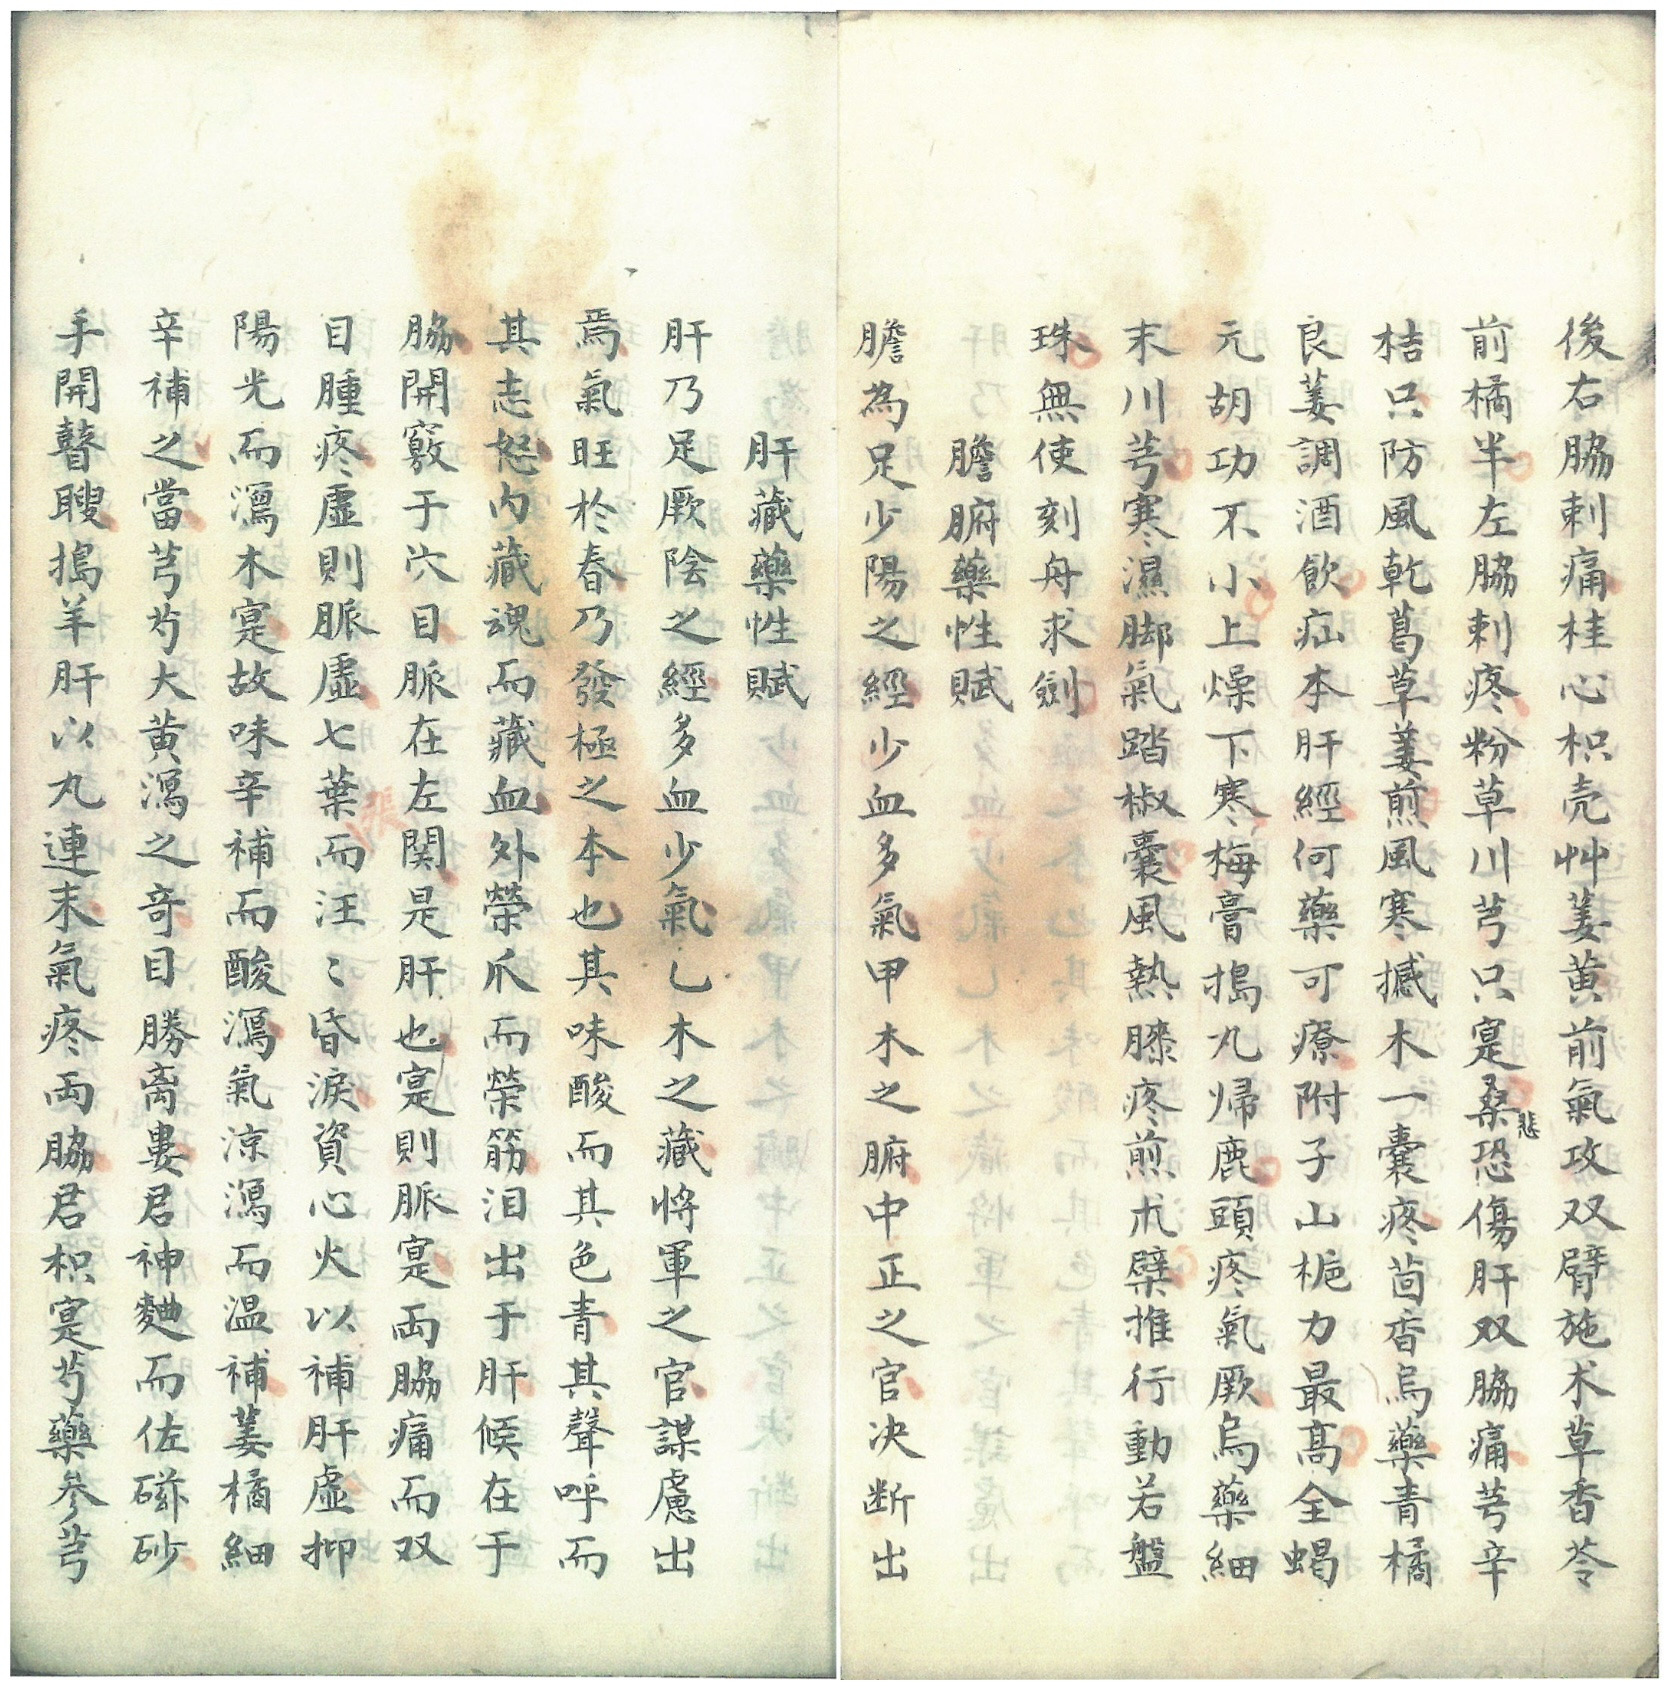 後右脇刺痛桂心枳壳艸姜黄前氣攻双臂施朮草香苓
前橘半左脇刺疼粉草川芎只寔桑恐傷肝双脇痛芎辛
悲
桔只防風乾葛草姜煎風寒撼木一囊疼茴香烏藥青橘
良姜調酒飲疝本肝經何藥可療附子山梔力最高全蝎
元胡功不小上燥下寒梅膏搗丸帰鹿頭疼氣厥烏藥細
末川芎寒濕脚氣踏椒囊風熱膝疼煎朮檗推行動若盤
珠無使刻舟求劍
膽腑藥性賦
膽為足少陽之經少血多氣甲木之腑中正之官决断出
肝藏藥性賦
肝乃足厥陰之經多血少氣乙木之藏將軍之官謀慮出
焉氣旺於春乃發極之本也其味酸而其色青其聲呼而
其志怒内藏魂而藏血外榮爪而榮筋泪出于肝候在于
脇開竅于穴目脈在左関是肝也寔則脈寔両脇痛而双
目腫疼虛則脈虛七葉而汪〻昏淚資心火以補肝虛抑
張
陽光而瀉木寔故味辛補而酸瀉氣凉瀉而温補姜橘細
辛補之當芎芍大黄瀉之竒目勝离婁君神麯而佐磁砂
手開瞽瞍搗羊肝以丸連末氣疼両脇君枳寔芍藥參芎